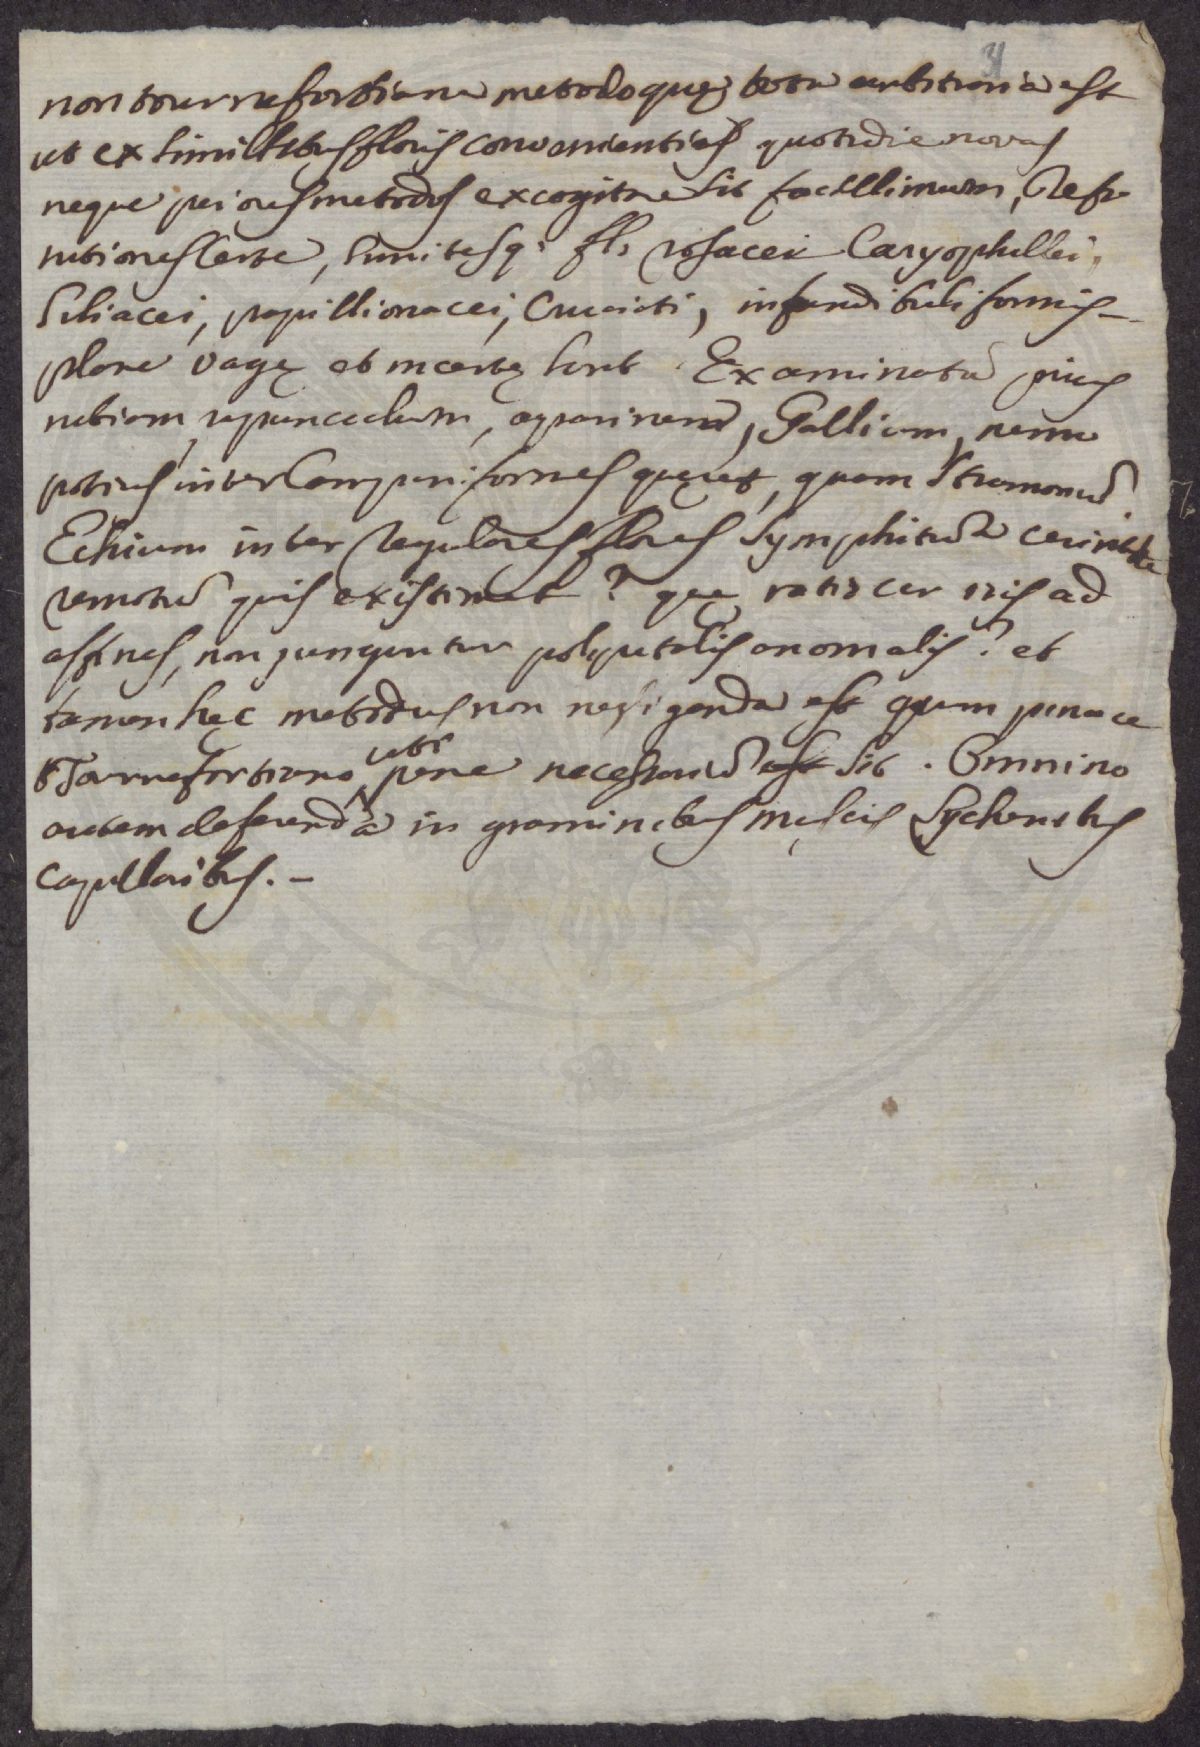 non tournefortiana metodo quę tota arbitraria est
ut ex similibus floris convenienties quotidie novas
neque peiores metodos excogitare sit facillimum, Defi
nitiones certe, limitesq; fl: rosacei Caryophillei,
liliacei, papillionacei, Cruciati, infundibuliformis –
plane vagę et incertę sunt. Examinatū prius
rapunculum, aparinem, Gallium, nemo
potius inter Campaniformes quęret, quam Stramoniū
Echium inter regulares flores Symphitū a cerinthe
remotū quis existimet? quę ratio cur iris ad
affines, non junguntur polypetalis anomalis? et
tamen hęc metodus non negligenda est quum pinace
Tournefortiano uti pene necessariū sit. Omnino
autem deserenda in graminibus muscis Lychenibus
capillaribus. –